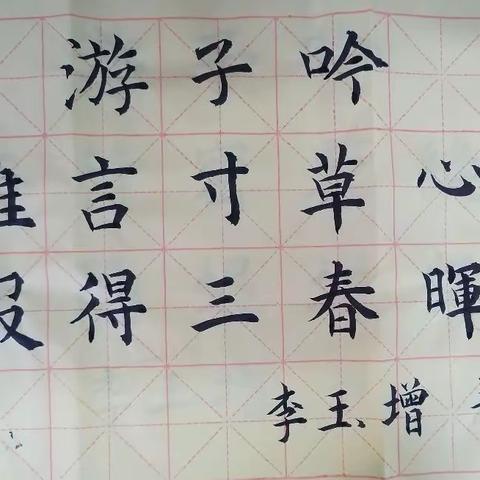 游子吟
言寸草心
得三春暉
李玉增